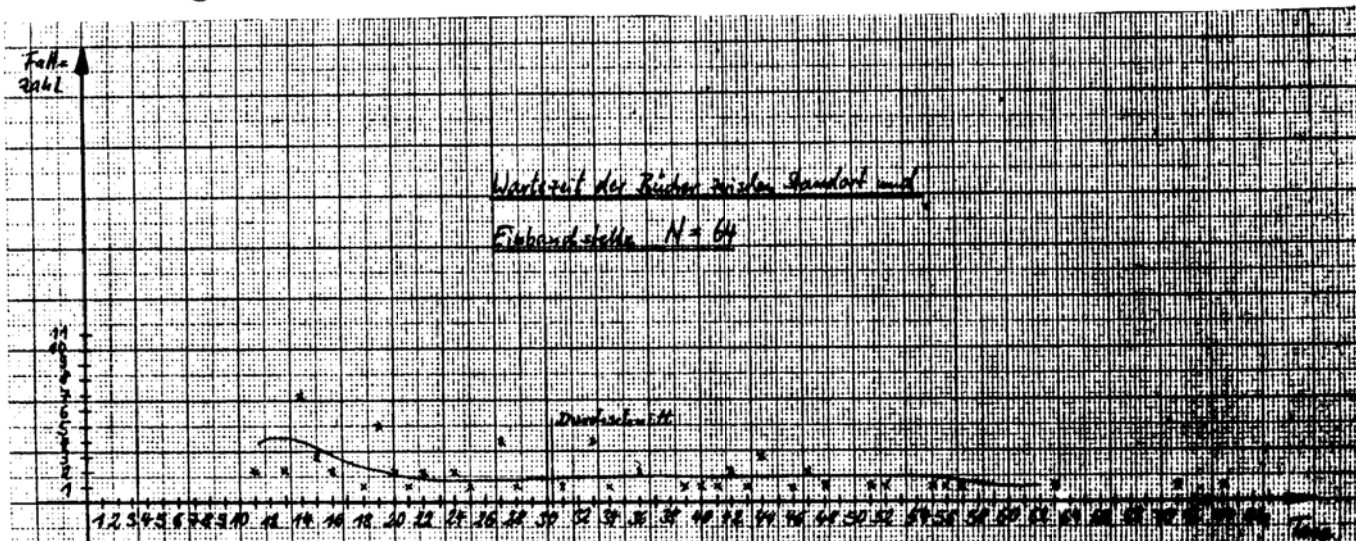 Fall=
zahl
Wartezeit der Bücher zwischen Standort und
Einbandstelle N = 64
11
10
9
8
7
6
5
4
3
2
1
Durchschnitt
1 2 3 4 5 6 7 8 9 10 12 14 16 18 20 22 24 26 28 30 32 34 36 38 40 42 44 46 48 50 52 54 56 58 60 62 64 66 68 70
Tage